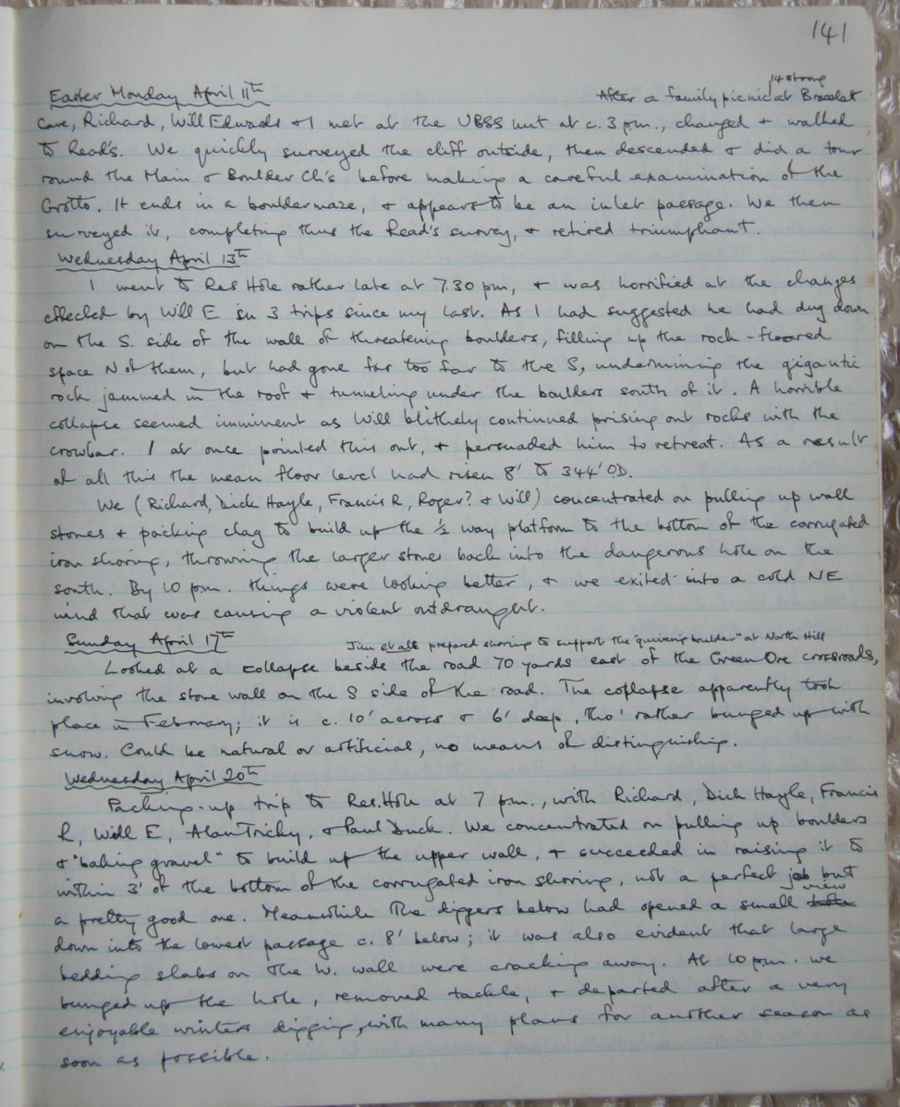 141
14 strong
Easter Monday April 11th After a family picnic at Bracelet
Cave, Richard, Will Edwards + I met at the UBSS hut at c. 3 pm., changed + walked
to Read's. We quickly surveyed the cliff outside, then descended + did a tour
round the Main + Boulder Ch's before making a careful examination of the
Grotto. It ends in a boulder maze, + appears to be an inlet passage. We then
surveyed it, completing thus the Read's survey, + retired triumphant.
Wednesday April 13th
I went to Res Hole rather late at 7.30 pm, + was horrified at the changes
effected by Will E in 3 trips since my last. As I had suggested he had dug down
on the S. side of the wall of threatening boulders, filling up the rock-floored
space N of them, but had gone far too far to the S, undermining the gigantic
rock jammed in the roof + tunneling under the boulders south of it. A horrible
collapse seemed imminent as Will blithely continued prising out rocks with the
crowbar. I at once pointed this out, + persuaded him to retreat. As a result
of all this the mean floor level had risen 8' to 344' O.D.
We (Richard, Dick Hayle, Francis R, Roger? + Will) concentrated on pulling up wall
stones + packing clag to build up the ½ way platform to the bottom of the corrugated
iron shoring, throwing the larger stones back into the dangerous hole on the
south. By 10 pm. things were looking better, + we exited into a cold NE
wind that was causing a violent outdraught.
Sunday April 17th Jim et alt prepared shoring to support the "quivering boulder" at North Hill
Looked at a collapse beside the road 70 yards east of the Green Ore crossroads,
involving the stone wall on the S side of the road. The collapse apparently took
place in February; it is c. 10' across + 6' deep, tho' rather bunged up with
snow. Could be natural or artificial, no means of distinguishing.
Wednesday April 20th
Packing-up trip to Res. Hole at 7 pm., with Richard, Dick Hayle, Francis
R, Will E, Alan Tricky, + Paul Duck. We concentrated on pulling up boulders
+ "baking gravel" to build up the upper wall, + succeeded in raising it to
within 3' of the bottom of the corrugated iron shoring, not a perfect job but
a pretty good one. Meanwhile the diggers below had opened a small view
down into the lowest passage c. 8' below; it was also evident that large
bedding slabs on the W. wall were cracking away. At 10 pm. we
bunged up the hole, removed tackle, + departed after a very
enjoyable winters digging, with many plans for another season as
soon as possible.